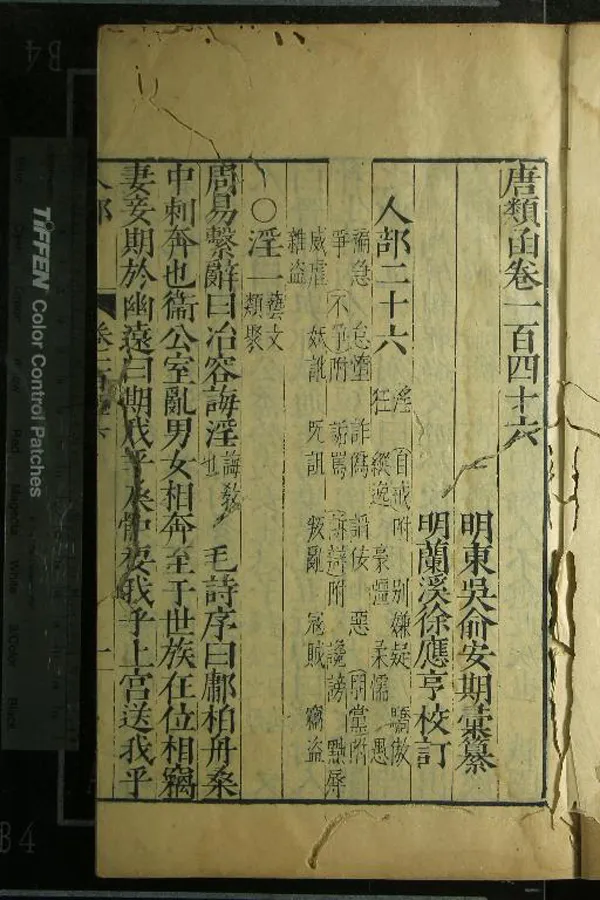 唐類函卷一百四十六
明東吳俞安期彙纂
明蘭溪徐應亨校訂
人部二十六
淫 百戒附 別嫌疑 驕傲
狂 縱逸 豪濇 柔懦 愚
褊急 怠墮 詐僞 諂佞 惡 朋黨附
爭 不爭附 詬罵 訴辯附 讒謗 黜辱
威虐 妖訛 咒詛 叛亂 寇賊 竊盜
雜盜
○淫一
藝文
類聚
周易繫辭曰冶容誨淫 誨教
也 毛詩序曰鄘柏舟桑
中刺奔也衞公室亂男女相奔至于世族在位相竊
妻妾期於幽遠曰期我乎桑中要我乎上宮送我乎
人部
一
TIFFEN Color Control Patches
B4
B4